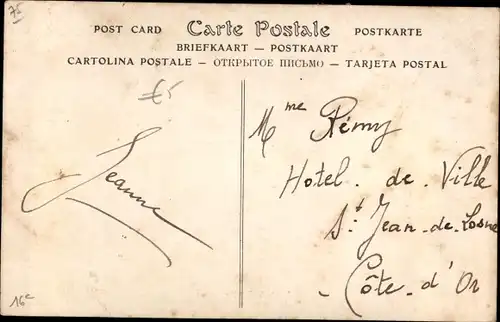 75
POST CARD Carte Postale POSTKARTE
BRIEFKAART — POSTKAART
CARTOLINA POSTALE — ОТКРЫТОЕ ПИСЬМО — TARJETA POSTAL
€5
Jeanne
Mme Rémy
Hotel de Ville
St Jean-de-Losne
Côte-d'Or
16e